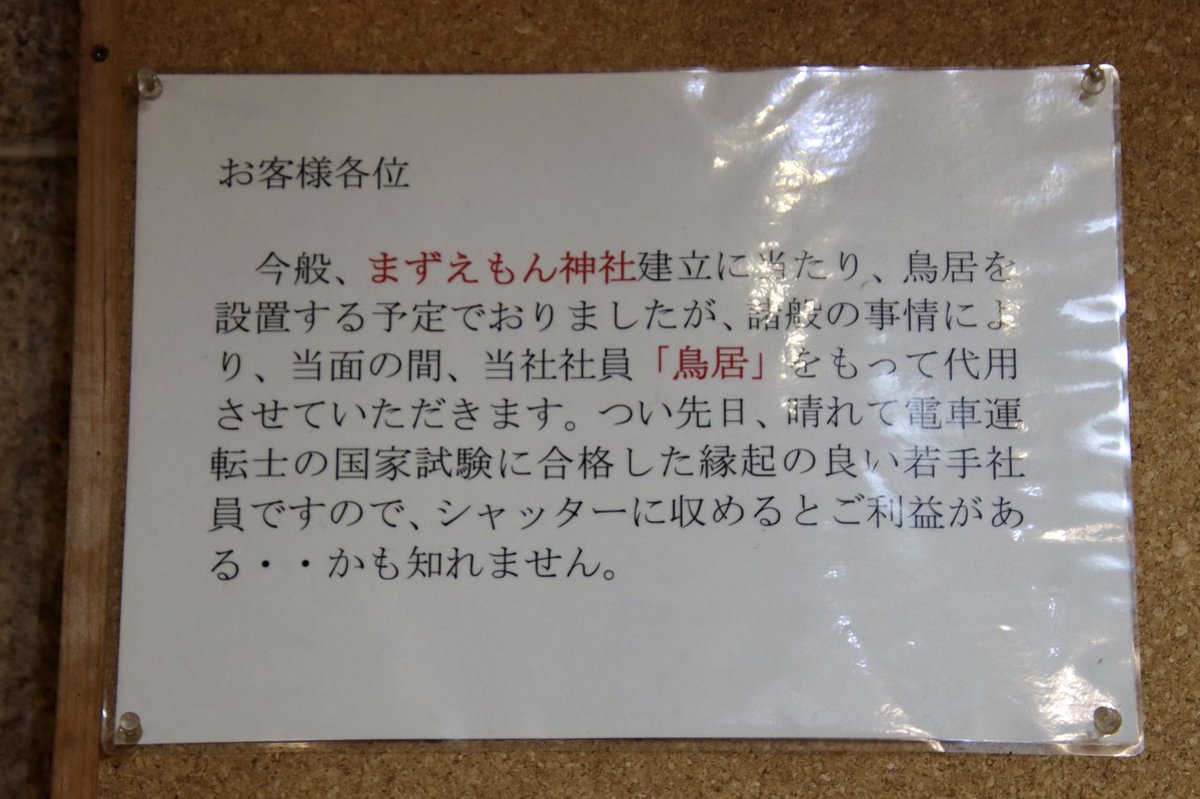 お客様各位
今般、まずえもん神社建立に当たり、鳥居を
設置する予定でおりましたが、諸般の事情によ
り、当面の間、当社社員「鳥居」をもって代用
させていただきます。つい先日、晴れて電車運
転士の国家試験に合格した縁起の良い若手社
員ですので、シャッターに収めるとご利益があ
る・・かも知れません。